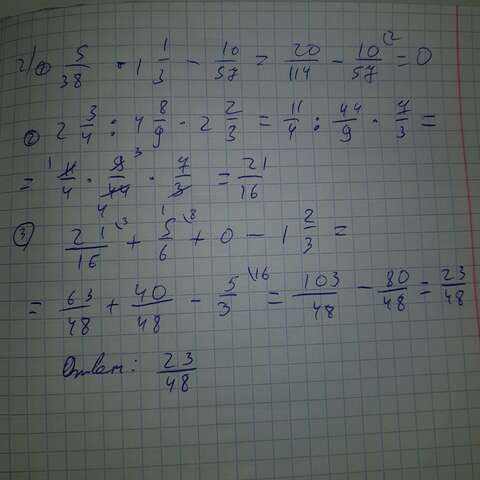 2) ① 5/38 · 1 1/3 - 10/57 = 20/114 - 10/57 \2 = 0
② 2 3/4 : 4 8/9 · 2 2/3 = 11/4 : 44/9 · 7/3 =
= 11/4 · 9/44 · 7/3 = 21/16
③ 21/16 \3 + 5/6 \8 + 0 - 1 2/3 =
= 63/48 + 40/48 - 5/3 \16 = 103/48 - 80/48 = 23/48
Ответ: 23/48